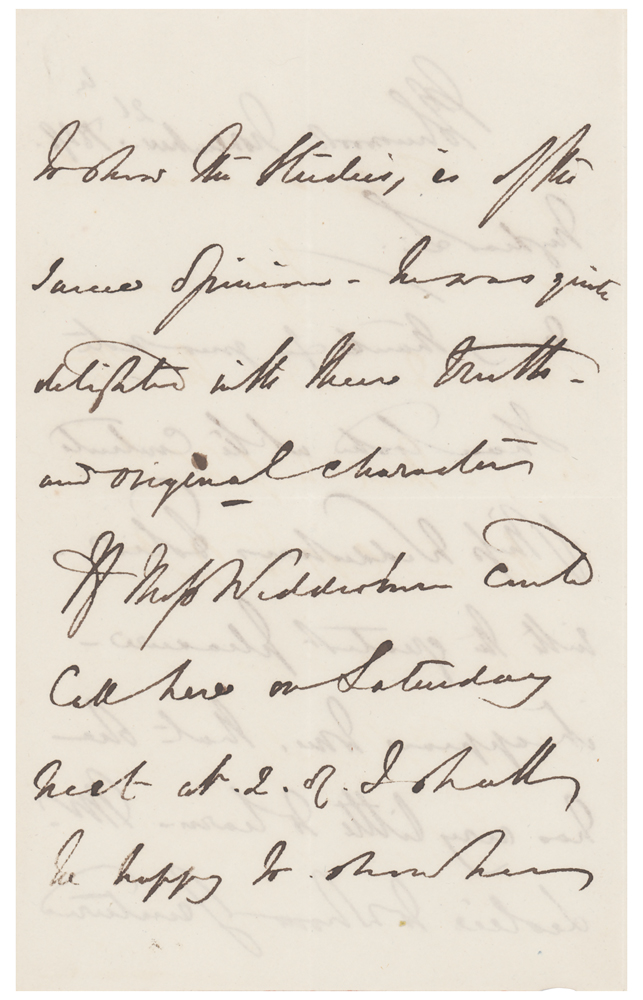 to show the studies, is of the
same opinion - he was quite
delighted with their truth -
and original character
If Miss Wedderburn could
Call here on Saturday
next at .2. I shall
be happy to show her